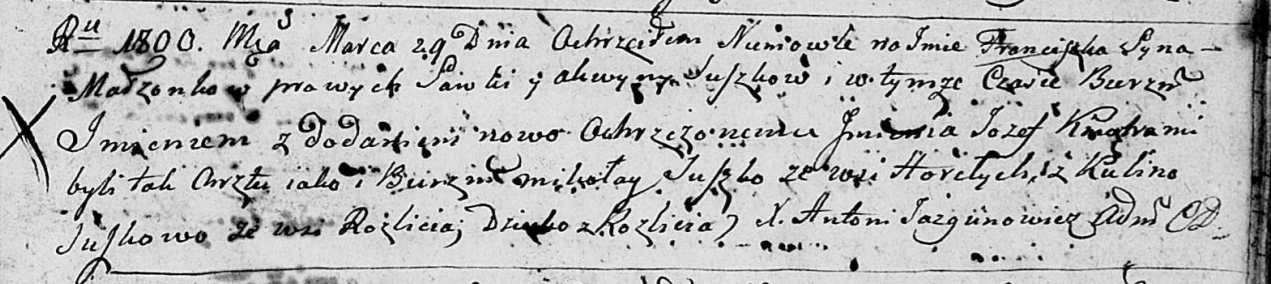 Ru 1800. Mca Marca 29 Dnia Ochrzciłem Niemowle na Imie Franciszka Syna –
Małzonkow prawych Sawki y Akwyny Suszkow i w tymze Czasie Bierzm
Imieniem z Dodaniem nowo Ochrzczonemu Imienia Jozef Kmotrami
byli tak Chrztu iako i Bierzm Mikołay Suszko ze wsi Horełych, z Kulino
Suszkowo ze wsi Rozlicia; Dziecko z Kozlicia) X. Antoni Jazgunowicz Adm CD